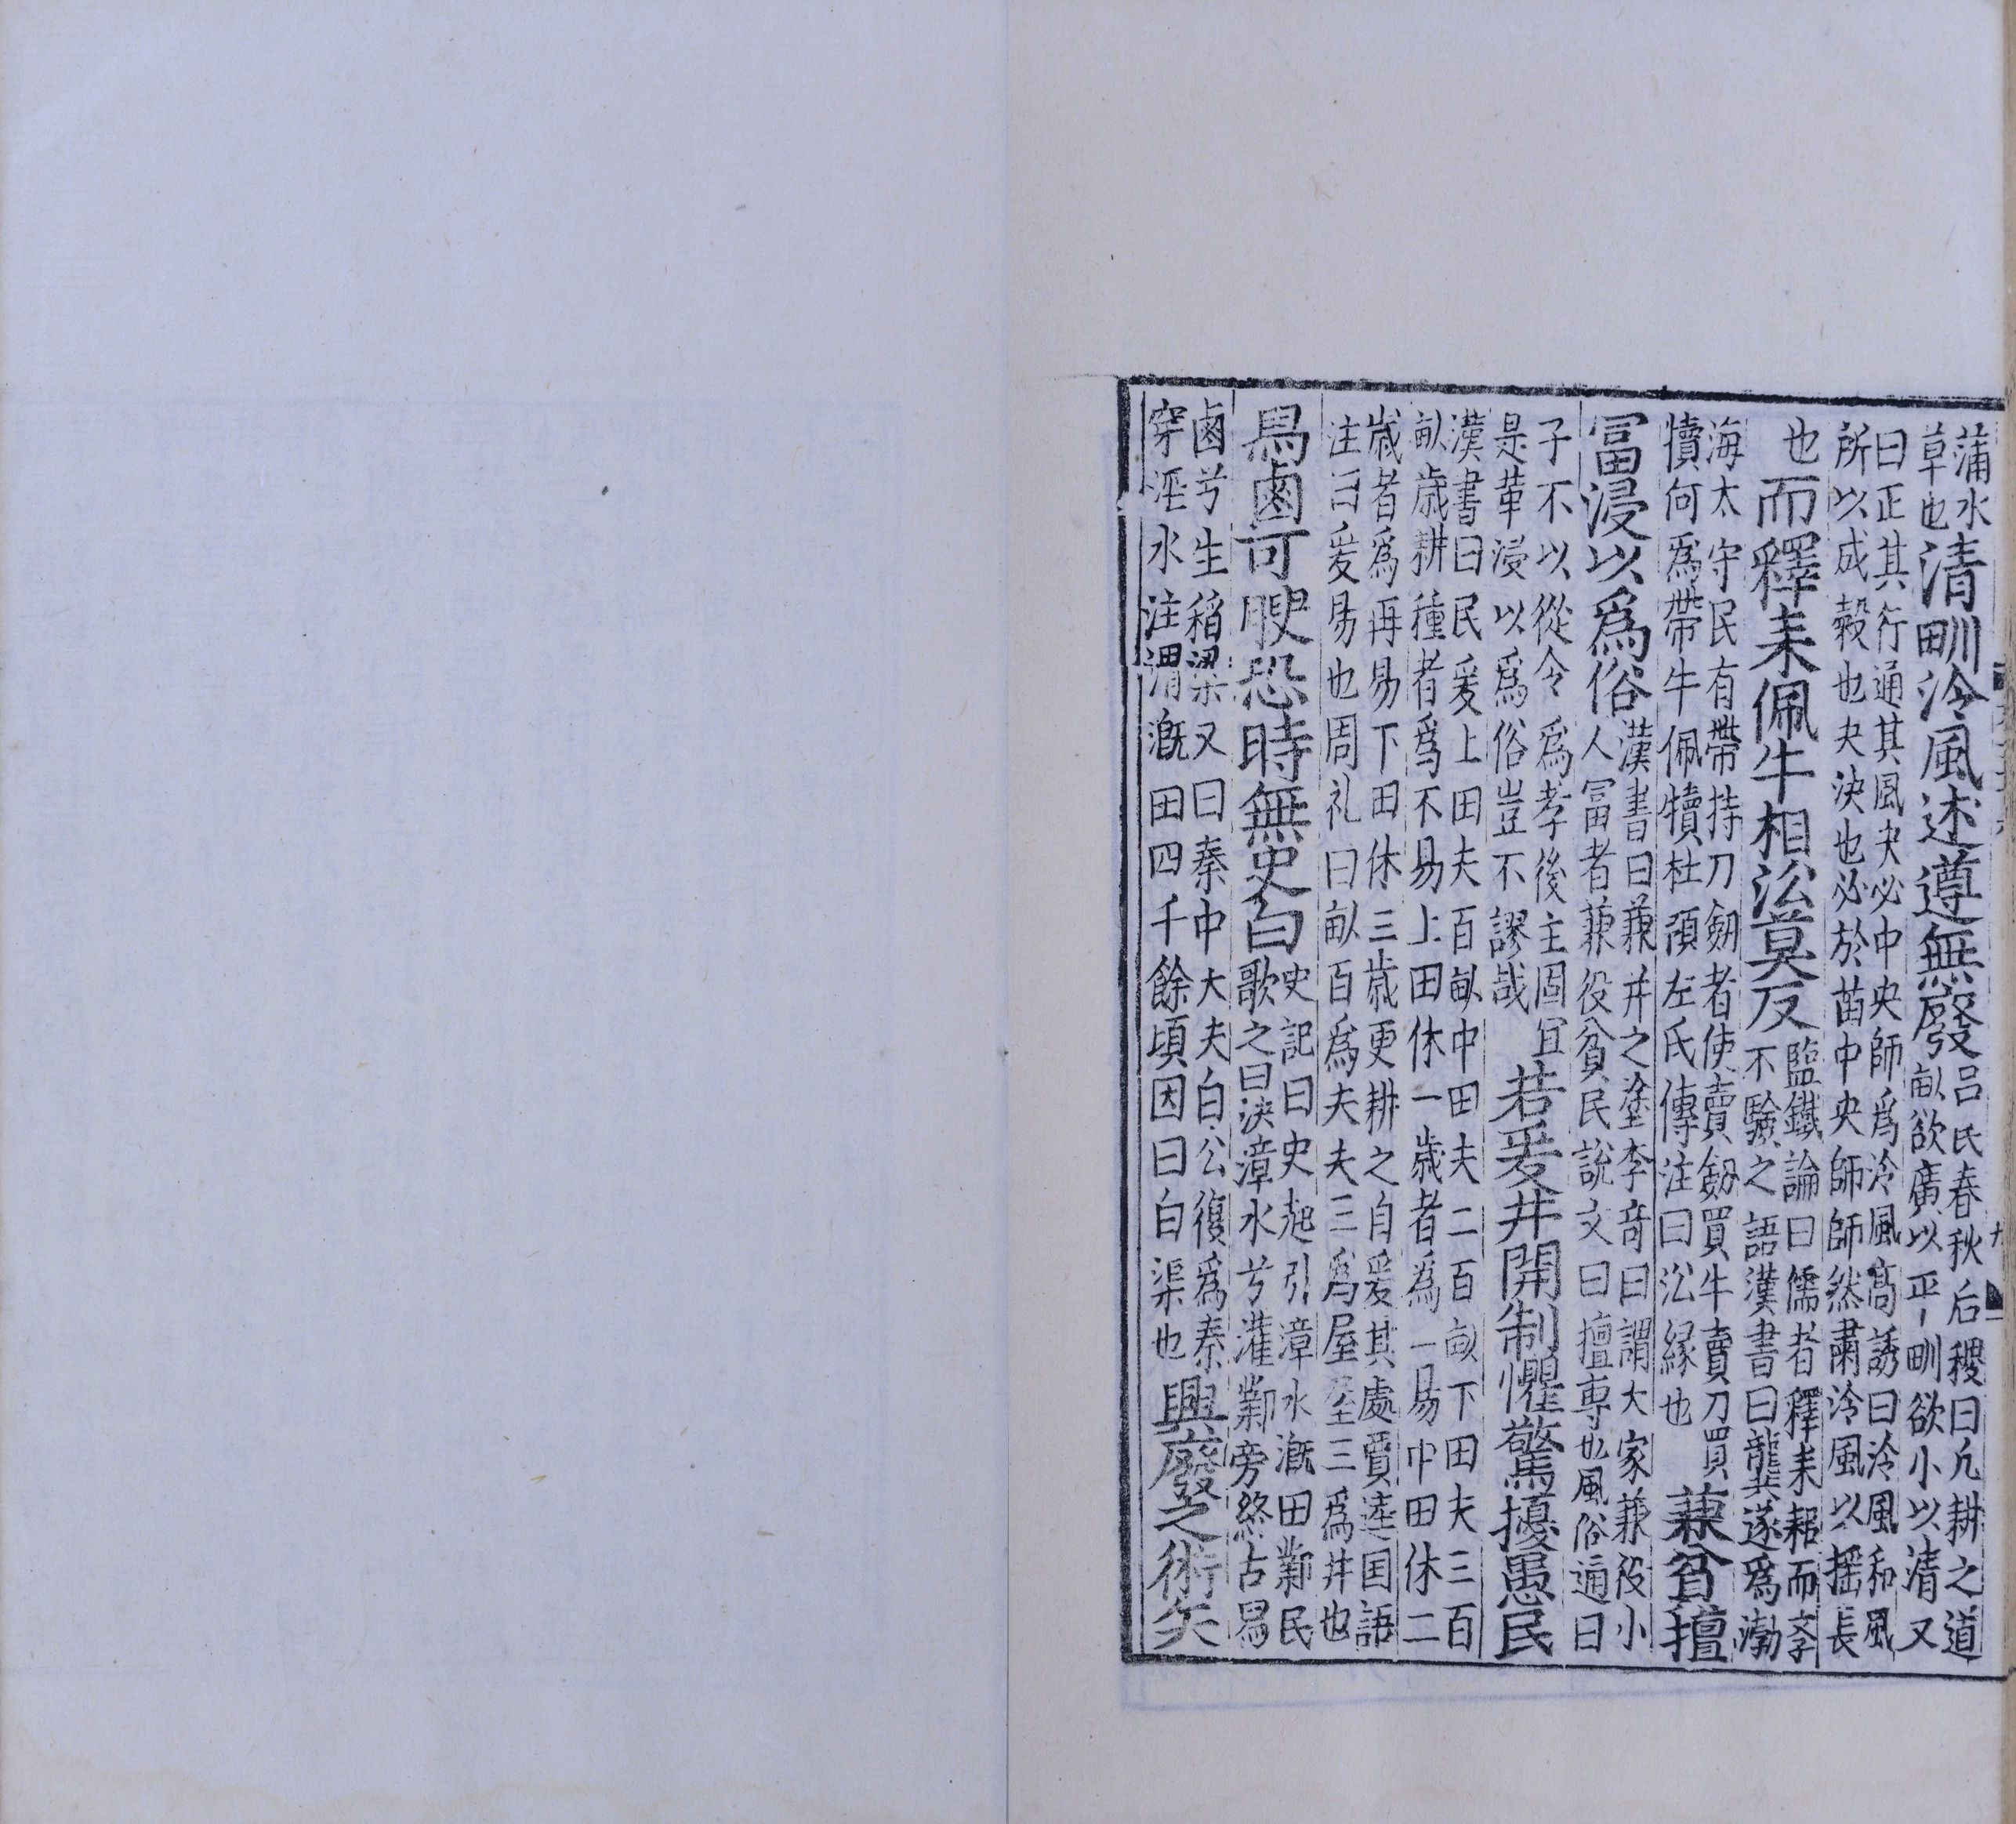 蒲水草也清甽泠風述遵無廢吕氏春秋后稷曰凢耕之道畝欲廣以平甽欲小以清又
曰正其行通其風夬必中央師爲泠風高誘曰泠風和風所以成穀也夬決也必於苗中央師師然肅泠風以摇長
也而釋耒佩牛相㳂莫反鹽鐵論曰儒者釋耒耜而孝不驗之語漢書曰龔遂爲渤
海太守民有帶持刀劔者使賣劔買牛賣刀買犢何爲帶牛佩犢杜預左氏傳注曰㳂縁也兼貧擅
冨浸以爲俗漢書曰兼并之塗李竒曰謂大家兼役小人冨者兼役貧民説文曰擅専也風俗通曰
子不以從令爲孝後主固冝是革浸以爲俗豈不謬哉若爰井開制懼驚擾愚民
漢書曰民爰上田夫百畝中田夫二百畝下田夫三百畝歳耕種者爲不易上田休一歳者爲一易中田休二
歳者爲再易下田休三歳更耕之自爰其處賈逵国語注曰爰易也周礼曰畝百爲夫夫三爲屋屋三爲井也
舄鹵可腴恐時無史白史記曰史起引漳水溉田鄴民歌之曰決漳水兮灌鄴旁終古舄
鹵兮生稻梁又曰秦中大夫白公復爲秦穿涇水注渭溉田四千餘頃因曰白渠也興廢之術矢